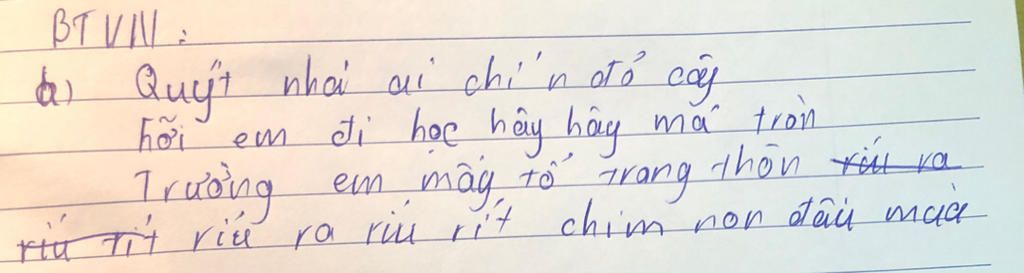 BTVN:
a) Quýt nhai ai chín đỏ cây
hỡi em đi học hây hây má tròn
Trường em mấy tổ trang thôn riú ra
riú rít riú ra riú rít chim non đâù muà